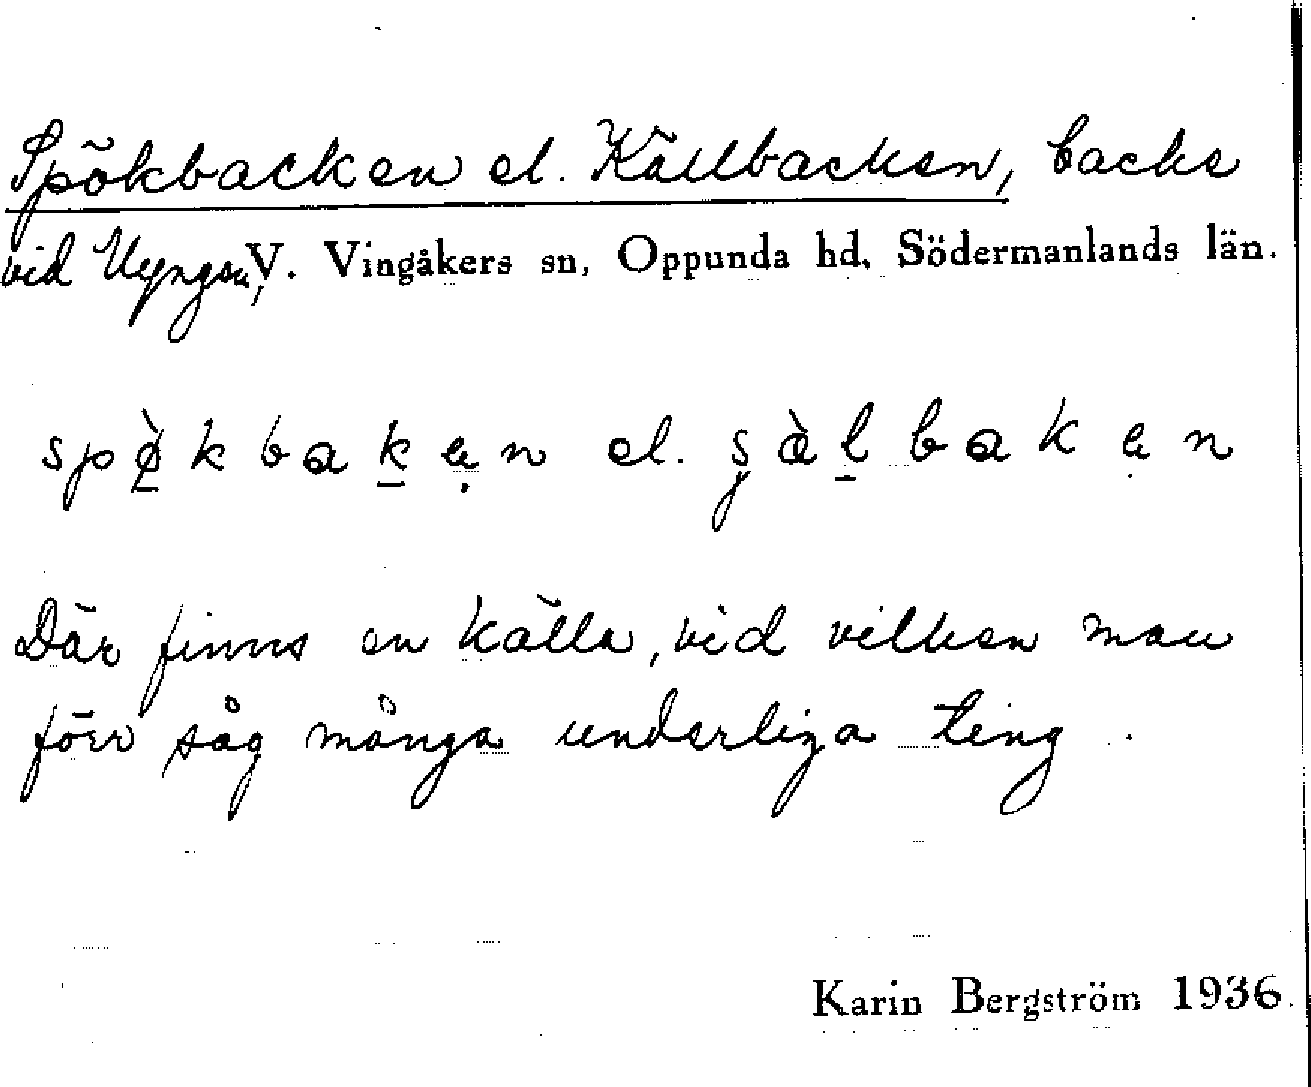 Spökbacken el. Källbacken, backe
vid Uyngen, V. Vingåkers sn, Oppunda hd, Södermanlands län.
spø̱̀kbaḵạn el. ʂàḻbakạn
Där finns en källa, vid vilken man
förr såg många underliga ting.
Karin Bergström 1936.